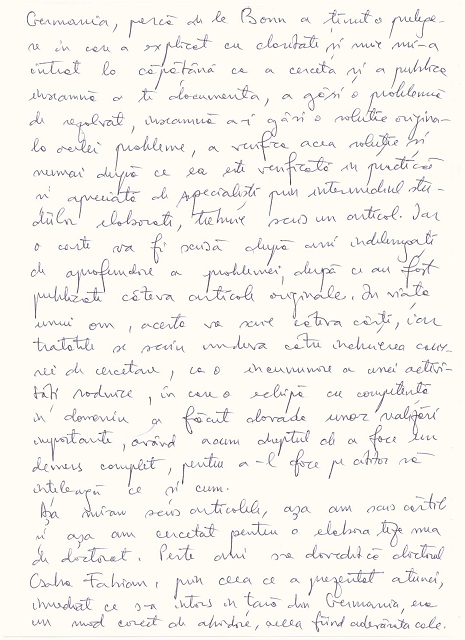 Germania, parcă de la Bonn a ținut o prelege-
re în care a explicat cu claritate și mie mi-a
intrat la căpățână că a cerceta și a publica
înseamnă a te documenta, a găsi o problemă
de rezolvat, înseamnă a-i găsi o soluție origina-
lă acelei probleme, a verifica acea soluție și
numai după ce ea este verificată în practică
și apreciată de specialiști prin intermediul stu-
diilor elaborate, trebuie scris un articol. Iar
o carte va fi scrisă după ani îndelungați
de aprofundare a problemei, după ce au fost
publicate câteva articole originale. În viața
unui om, acesta va scrie câteva cărți, iar
tratatele se scriu undeva către încheierea carie-
rei de cercetare, ca o încununare a unei activi-
tăți rodnice, în care o echipă cu competențe
în domeniu a făcut dovada unor realizări
importante, având acum dreptul de a face un
demers complet, pentru a-l face pe cititor să
înțeleagă ce și cum.
Așa mi-am scris articolele, așa am scris cărțile
și așa am cercetat pentru a elabora teza mea
de doctorat. Peste ani s-a dovedit că doctorul
Csaba Fabian, prin ceea ce a prezentat atunci,
imediat ce s-a întors în țară din Germania, era
un mod corect de abordare, aceea fiind adevărata cale.